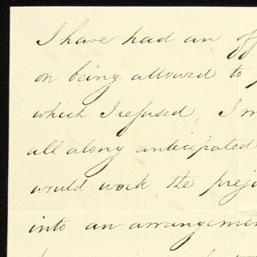 I have had an
on being allowed to
which I refused, I
all along anticipated
would work the
into an